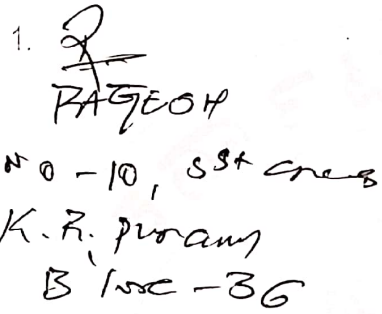 1.
RAGESH
No-10, 5st cross
K.R. puram
B'lore-36